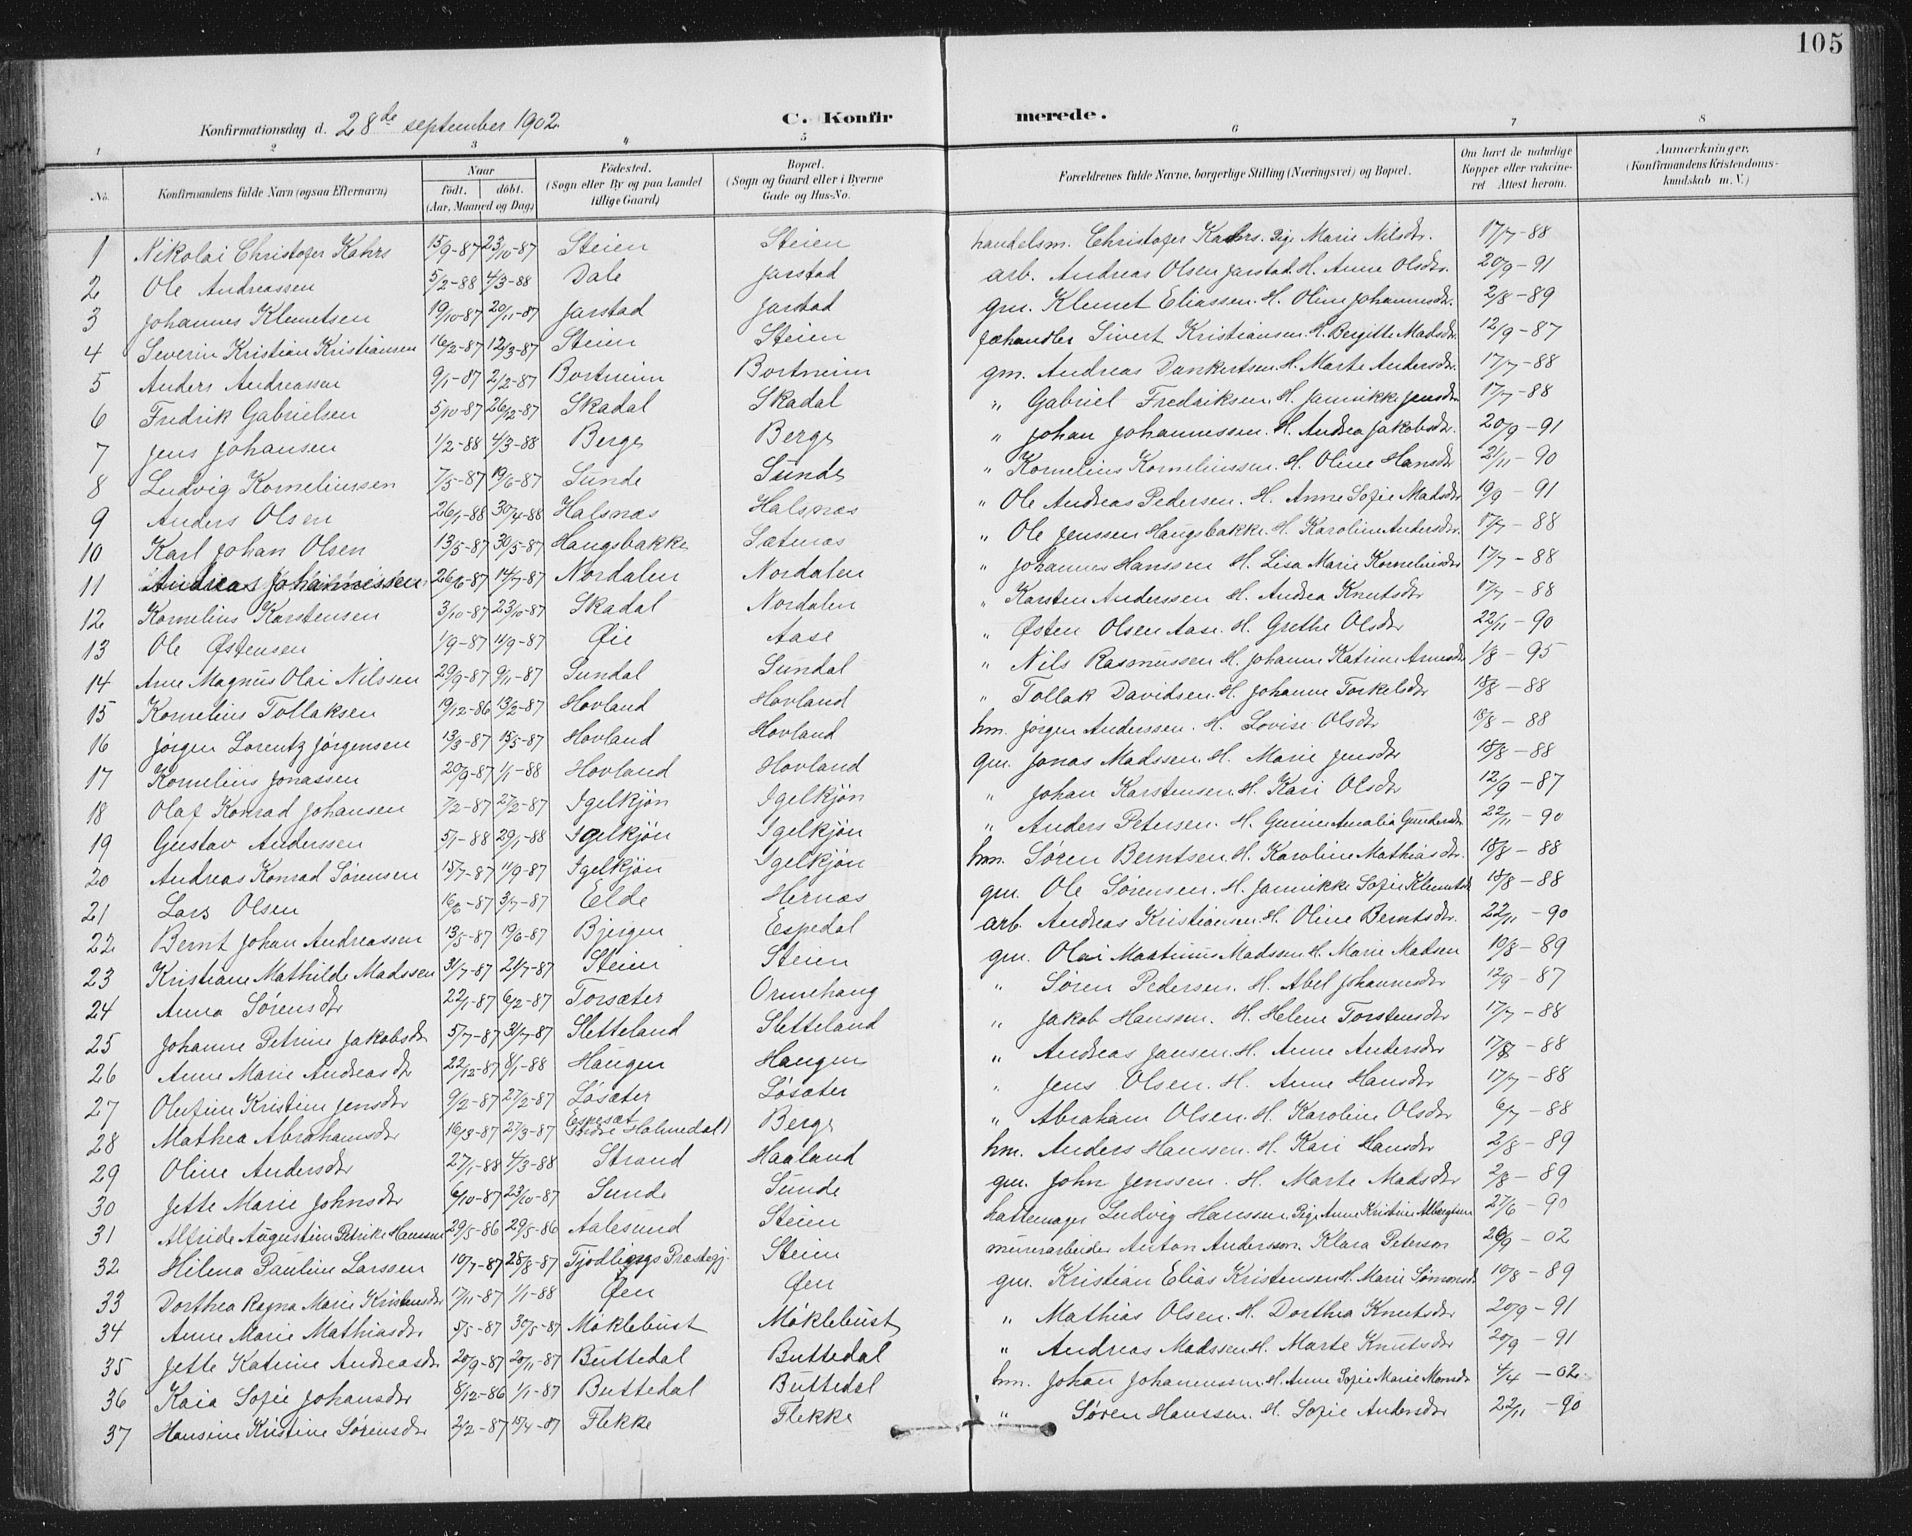 105
Konfirmationsdag d. 28de september 1902. C. Konfirmerede.
1 2 3 4 5 6 7 8
No. Konfirmandens fulde Navn (ogsaa Efternavn) Naar født, døbt. (Aar, Maaned og Dag) Fødested. (Sogn eller By og paa Landet tillige Gaard) Bopæl. (Sogn og Gaard eller i Byerne Gade og Hus-No. Forældrenes fulde Navne, borgerlige Stilling (Næringsvei) og Bopæl. Om havt de naturlige Kopper eller vakcineret Attest herom. Anmærkninger. (Konfirmandens Kristendomskundskab m. V.)
1 Nikolai Christofer Kahrs 15/9-87 23/10-87 Steien Steien handelsm. Christofer Kahrs. Pige Marie Nilsdr. 17/7-88
2 Ole Andreassen 5/2-88 4/3-88 Dale Jarstad arb. Andreas Olsen Jarstad. H. Anne Olsdr. 20/9-91
3 Johannes Klemetsen 19/10-87 20/11-87 Jarstad Jarstad gm. Klemet Eliassen. H. Oline Johannesdr. 2/8-89
4 Severin Kristian Kristiansen 16/2-87 12/3-87 Steien Steien fæhandler Sivert Kristiansen. H. Bergitte Madsdr. 12/9-87
5 Anders Andreassen 9/1-87 2/2-87 Bortneim Bortneim gm. Andreas Dankertsen. H. Marte Andersdr. 17/7-88
6 Fredrik Gabrielsen 5/10-87 26/12-87 Skadal Skadal " Gabriel Fredriksen. H. Jannikke Jensdr. 17/7-88
7 Jens Johansen 1/2-88 4/3-88 Berge Berge " Johan Johannessen. H. Andrea Jakobsdr. 20/9-91
8 Ludvig Korneliussen 7/5-87 19/6-87 Sunde Sunde " Kornelius Korneliussen. H. Oline Hansdr. 2/11-90
9 Anders Olsen 26/1-88 30/4-88 Halsnæs Halsnæs " Ole Andreas Pedersen. H. Anne Sofie Madsdr. 19/9-91
10 Karl Johan Olsen 13/5-87 30/5-87 Haugsbakke Sætenæs " Ole Jenssen Haugsbakke H. Karoline Andersdr. 17/7-88
11 Andreas Johannessen 26/6-87 14/7-87 Nordalen Nordalen " Johannes Hanssen H. Lisa Marie Korneliusdr 17/7-88
12 Kornelius Karstensen 3/10-87 23/10-87 Skadal Nordalen " Karsten Anderssen H. Andrea Knutsdr 17/7-88
13 Ole Østensen 1/9-87 11/9-87 Øie Aase " Østen Olsen Aase. H. Grethe Olsdr 22/11-90
14 Arne Magnus Olai Nilssen 29/9-87 9/11-87 Sundal Sundal " Nils Rasmussen H. Johanne Katrine Arnesdr 1/8-95
15 Kornelius Tollaksen 19/12-86 13/2-87 Hovland Hovland " Tollak Davidsen. H. Johanne Torkelsdr 18/8-88
16 Jørgen Lorentz Jørgensen 13/3-87 15/5-87 Hovland Hovland hm. Jørgen Anderssen. H. Lovise Olsdr 18/8-88
17 Kornelius Jonassen 20/9-87 1/1-88 Hovland Hovland gm. Jonas Madssen. H. Marie Jensdr 18/8-88
18 Olaf Konrad Johansen 7/2-87 27/2-87 Igelkjøn Igelkjøn " Johan Karstensen. H. Kari Olsdr 12/9-87
19 Gustav Anderssen 5/1-88 29/1-88 Igelkjøn Igelkjøn " Anders Petersen. H. Gurine Amalia Gundersdr 22/11-90
20 Andreas Konrad Sørensen 15/7-87 11/9-87 Igelkjøn Igelkjøn hm. Søren Berntsen. H. Karoline Mathiasdr. 18/8-88
21 Lars Olsen 16/6-87 3/7-87 Elde Hernæs gm. Ole Sørensen. H. Jannikke Sofie Klemetsdr 18/8-88
22 Bernt Johan Andreassen 13/5-87 19/6-87 Bjergen Espedal arb. Andreas Kristiansen H. Oline Berntsdr. 22/11-90
23 Kristiane Mathilde Madssen 31/7-87 21/7-87 Steien Steien gm. Olai Martinus Madssen H. Marie Madsen 10/8-89
24 Anna Sørensdr 22/1-87 6/2-87 Torsæter Ormehaug " Søren Pedersen. H. Abel Johannesdr 12/9-87
25 Johanne Petrine Jakobsdr 5/7-87 31/7-87 Sletteland Sletteland " Jakob Hanssen. H. Helene Torstensdr 17/7-88
26 Anne Marie Andreasdr 22/12-87 8/1-88 Haugen Haugen " Andreas Jansen. H. Anne Andersdr 17/8-88
27 Olufine Kristine Jensdr 9/2-87 27/2-87 Løsæter Løsæter " Jens Olsen. H. Anne Hansdr 17/7-88
28 Mathea Abrahamsdr 16/3-87 27/3-87 Espesæt (Indre Holmedal) Berge " Abraham Olsen. H. Karoline Olsdr 6/7-88
29 Oline Andersdr 27/1-88 4/3-88 Strand Haaland hm. Anders Hanssen. H. Kari Hansdr 2/8-89
30 Jette Marie Johnsdr 6/10-87 23/10-87 Sunde Sunde gm. John Jenssen. H. Marte Madsdr 2/8-89
31 Alfride Augustine Petrike Hanssen 29/5-86 29/5-86 Aalesund Steien hattemager Ludvig Hanssen. Pige Anne Kristine Albregtsen 27/6-90
32 Hilena Pauline Larssen 10/7-87 28/8-87 Fjødlings Præstegj. Steien murerarbeider Anton Andersson. Klara Peterson 26/9-02
33 Dorthea Ragna Marie Kristensdr 17/11-87 1/1-88 Øen Øen gm. Kristian Elias Kristensen H. Marie Simonsd. 10/8-89
34 Anne Marie Mathiasdr 5/5-87 30/5-87 Møklebust Møklebust " Mathias Olsen. H. Dorthea Knutsdr 20/9-91
35 Jette Katrine Andreasdr 20/9-87 20/11-87 Buttedal Buttedal " Andreas Madssen. H. Marte Knutsdr 20/9-91
36 Kaia Sofie Johansdr 8/12-86 1/1-87 Buttedal Buttedal hm. Johan Johannessen H. Anne Sofie Marie Monsdr 4/4-02.
37 Hansine Kristine Sørensdr 2/2-87 15/4-87 Flekke Flekke " Søren Hanssen. H. Sofie Andersdr 22/11-90